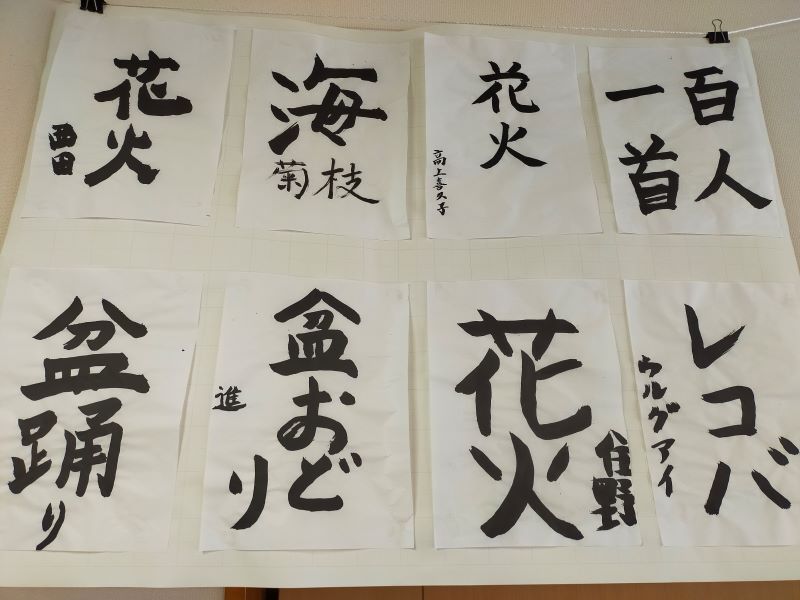 花火
西田
海
菊枝
花火
高上喜久子
百人
一首
盆踊り
盆おど
り
進
花火
住野
レコバ
ウルグアイ